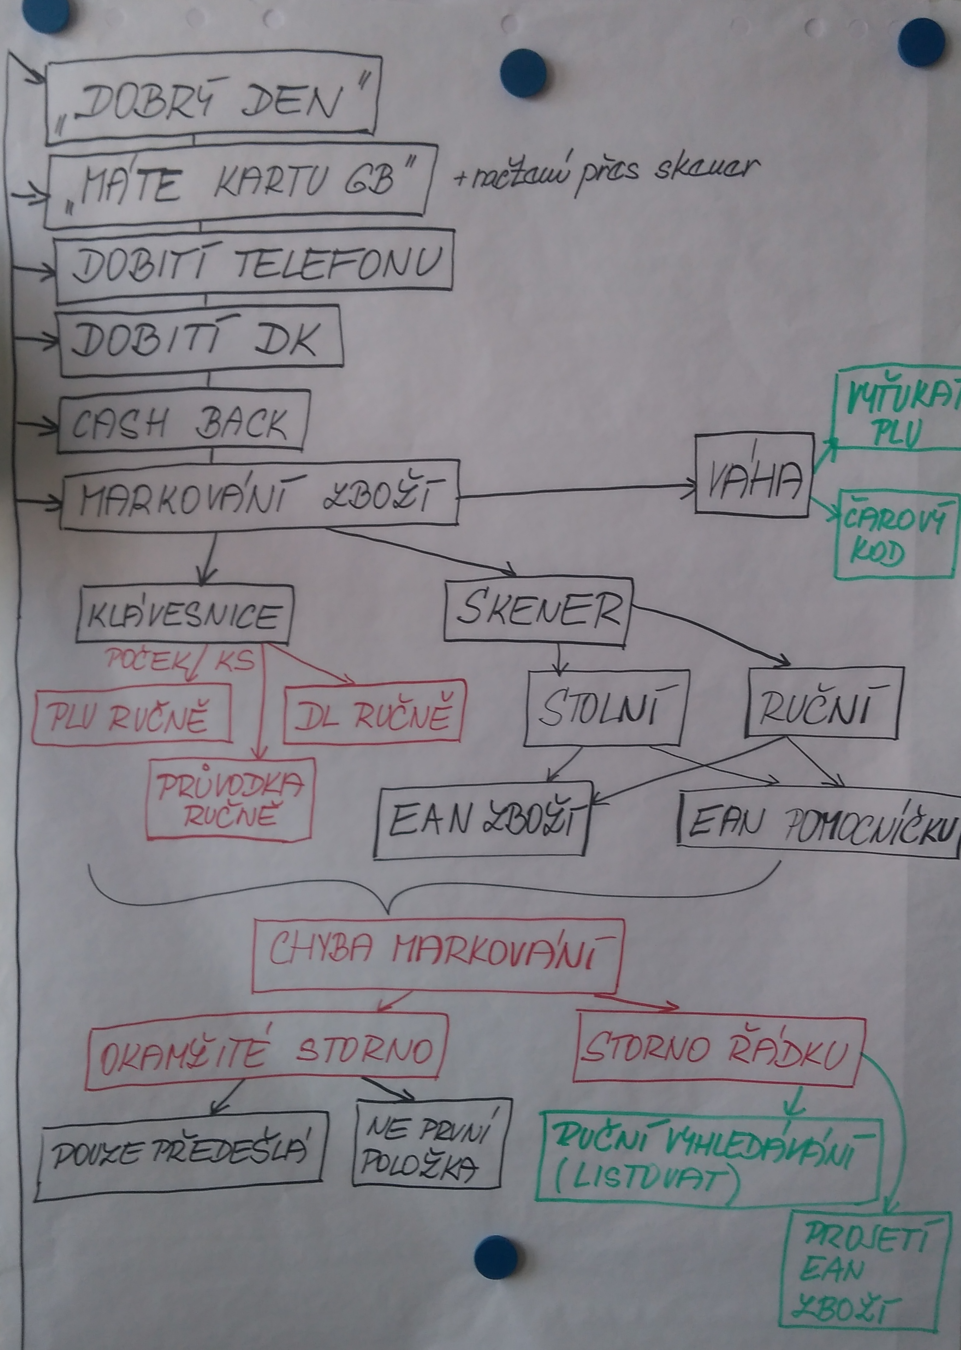 „DOBRÝ DEN"
„MÁTE KARTU GB" + načtení přes skener
DOBITÍ TELEFONU
DOBITÍ DK
CASH BACK
MARKOVÁNÍ ZBOŽÍ
VÁHA
VYŤUKAT
PLU
ČAROVÝ
KOD
KLÁVESNICE
SKENER
POČEK/KS
PLU RUČNĚ
DL RUČNĚ
PRŮVODKA
RUČNĚ
STOLNÍ
RUČNÍ
EAN ZBOŽÍ
EAN POMOCNÍČKU
CHYBA MARKOVÁNÍ
OKAMŽITÉ STORNO
STORNO ŘÁDKU
POUZE PŘEDEŠLÁ
NE PRVNÍ
POLOŽKA
RUČNÍ VYHLEDÁVÁNÍ
(LISTOVAT)
PROJETÍ
EAN
ZBOŽÍ